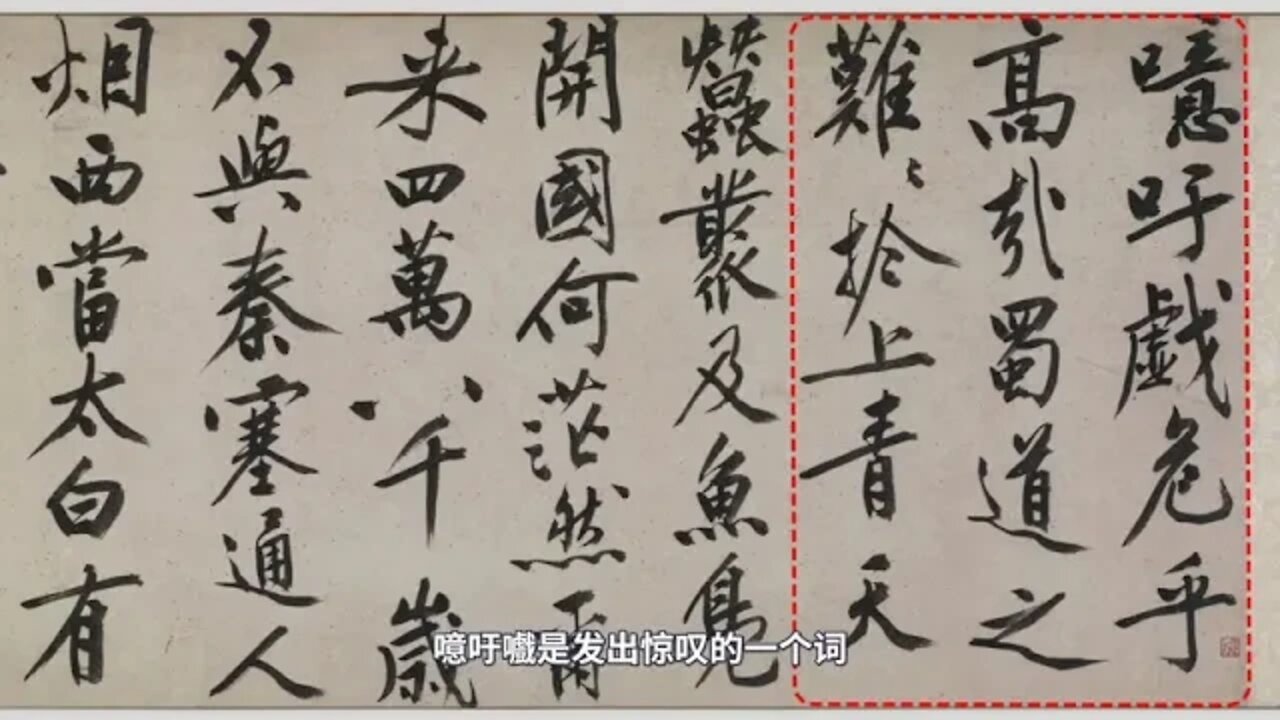 噫吁戯危乎
高哉蜀道之
難〻於上青天
蠶叢及魚鳧
開國何茫然爾
来四萬八千歲
不與秦塞通人
烟西當太白有
噫吁嚱是发出惊叹的一个词